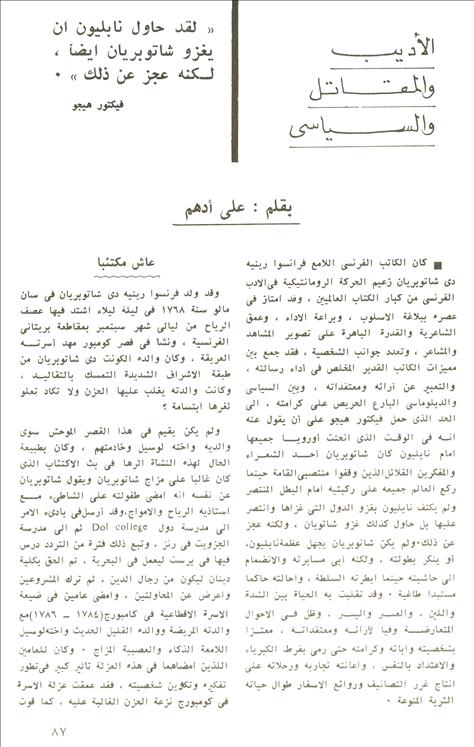 الأديب
والمقاتل
والسياسى
« لقد حاول نابليون ان
يغزو شاتوبريان ايضا ،
لكنه عجز عن ذلك » ٠
فيكتور هيجو
بقلم : على أدهم
■ كان الكاتب الفرنسى اللامع فرانسوا رينيه
دى شاتوبريان زعيم الحركة الرومانتيكية فى الادب
الفرنسى من كبار الكتاب العالميين ، وقد امتاز فى
عصره ببلاغة الاسلوب ، وبراعة الاداء ، وعمق
الشاعرية والقدرة الباهرة على تصوير المشاهد
والمشاعر ، وتعدد جوانب الشخصية ، فقد جمع بين
مميزات الكاتب القدير المخلص فى أداء رسالته ،
والتعبير عن آرائه ومعتقداته ، وبين السياسى
والدبلوماسى البارع الحريص على كرامته ، الى
الحد الذى حمل فيكتور هيجو على أن يقول عنه
انه فى الوقت الذى انحنت أوروبا جميعها
امام نابليون كان شاتوبريان أحد الشعراء
والمفكرين القلائل الذين وقفوا منتصبى القامة حينما
ركع العالم جميعه على ركبتيه امام البطل المنتصر
ولم يكتف نابليون بغزو الدول التى غزاها وانتصر
عليها بل حاول كذلك غزو شاتوبان ، ولكنه عجز
عن ذلك ٠ ولم يكن شاتوبريان يجهل عظمة نابليون،
أو ينكر بطولته ، ولكنه أبى مسايرته والانضمام
الى حاشيته حينما أبطرته السلطة ، واحالته حاكما
مستبدا طاغية ٠ وقد تقلبت به الحياة بين الشدة
واللين ، والعسر واليسر ، وظل فى الاحوال
المتعارضة وفيا لآرائه ومعتقداته ، معتزا
بشخصيته وابائه وكرامته حتى رمى بفرط الكبرياء
والاعتداد بالنفس ، واعانته تجاربه ورحلاته على
انتاج غرر التصانيف وروائع الاسفار طوال حياته
الثرية المنوعة ٠
عاش مكتئبا
وقد ولد فرنسوا رينيه دى شاتوبريان فى سان
مالو سنة ١٧٦٨ فى ليلة ليلاء اشتد فيها عصف
الرياح من ليالى شهر سبتمبر بمقاطعة بريتانى
الفرنسية ، ونشأ فى قصر كومبور مهد أسرته
العريقة ، وكان والده الكونت دى شاتوبريان من
طبقة الاشراف الشديدة التمسك بالتقاليد ،
وكانت والدته يغلب عليها الحزن ولا تكاد تعلو
ثغرها ابتسامة ؟
ولم يكن يقيم فى هذا القصر الموحش سوى
والديه واخته لوسيل وخادمتهم ، وكان بطبيعة
الحال لهذه النشأة أثرها فى بث الاكتئاب الذى
كان غالبا على مزاج شاتوبريان ويقول شاتوبريان
عن نفسه انه امضى طفولته على الشاطىء مع
استاذيه الرياح والامواج،وقد أرسل فى بادىء الامر
الى مدرسة دول Dol college ثم الى مدرسة
الجزويت فى رنز ، وتبع ذلك فترة من التردد درس
فيها فى برست ليعمل فى البحرية ، ثم الحق بكلية
دينان ليكون من رجال الدين ، ثم ترك المشروعين
واعرض عن المحاولتين ، وامضى عامين فى ضيعة
الاسرة الاقطاعية فى كامبورج (١٧٨٤ – ١٧٨٦) مع
والدته المريضة ووالده القليل الحديث واخته لوسيل
اللامعة الذكاء والعصبية المزاج ٠ وكان للعامين
اللذين امضاهما فى هذه العزلة تأثير كبير فى تطور
تفكيره وتكوين شخصيته ، فقد عمقت عزلة الاسرة
فى كومبورج نزعة الحزن الغالبة عليه ، كما قوت
٨٧